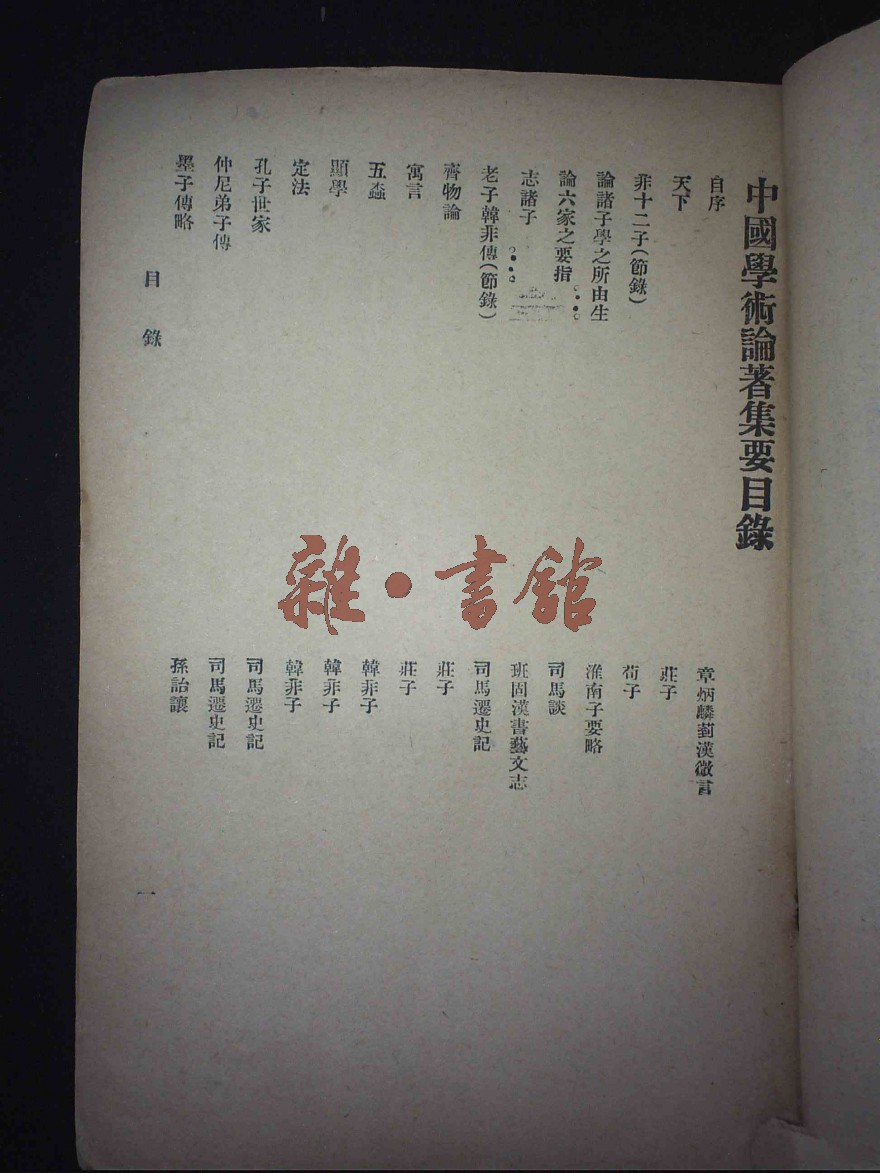 中國學術論著集要目錄
自序
章炳麟菿漢微言
天下
莊子
非十二子(節錄)
荀子
論諸子學之所由生
淮南子要略
論六家之要指
司馬談
志諸子
班固漢書藝文志
老子韓非傳(節錄)
司馬遷史記
齊物論
莊子
寓言
莊子
五蠹
韓非子
顯學
韓非子
定法
韓非子
孔子世家
司馬遷史記
仲尼弟子傳
司馬遷史記
墨子傳略
孫詒讓
目錄
一
雜·書館